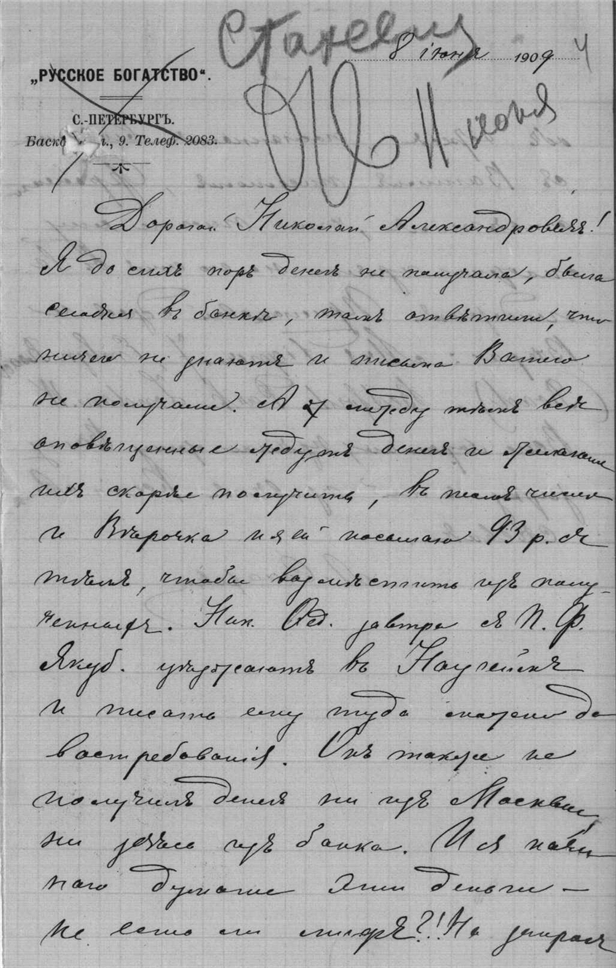 8 іюня 1909 4
„РУССКОЕ БОГАТСТВО“.
С.-ПЕТЕРБУРГЪ.
9. Телеф. 2083.
11 июня
Дорогой Николай Александровичъ!
Я до сихъ поръ денегъ не получала, была
сегодня въ банкѣ, тамъ отвѣтили, что
ничего не знаютъ и письма Вашего
не получали. А между тѣмъ всѣ
оповѣщенные ждутъ денегъ и
ихъ скорѣе получить, въ томъ числѣ
и Вѣрочка и я ей посылаю 93 р. съ
тѣмъ, чтобы возмѣстить изъ полу-
ченныхъ. Ник. Ѳед. завтра съ П. Ф.
Якуб. уѣзжаютъ въ
и писать ему туда можно до
востребованія. Онъ также не
получилъ денегъ ни изъ Москвы,
ни здѣсь изъ банка. И я начи-
наю думать эти деньги —
не есть ли миѳъ?! На